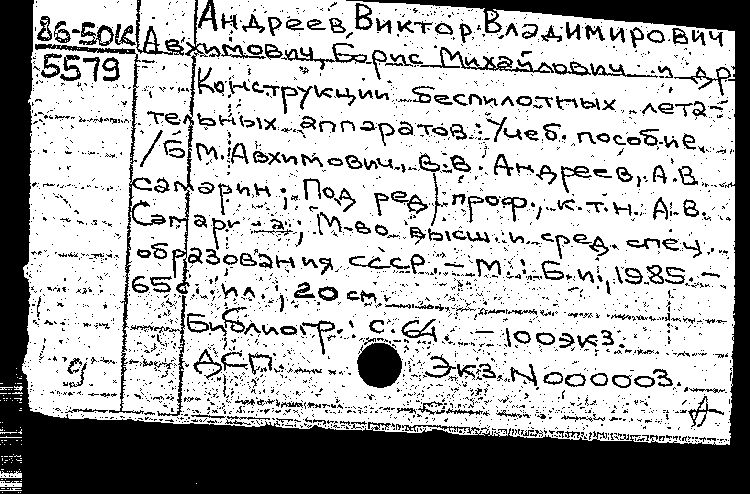 86-50К
5579
Андреев, Виктор Владимирович
Авхимович, Борис Михайлович и др
Конструкции беспилотных лета-
тельных аппаратов: Учеб. пособие.
/Б.М. Авхимович, В.В. Андреев, А.В.
Самарин; Под ред. проф., к.т.н. А.В.
Самари-а; М-во высш. и сред. спец.
образования СССР. – М.: Б.и., 1985. –
65с. ил., 20 см.
Библиогр.: с. 64. – 100экз.
ДСП. Экз. N000003.
g
А